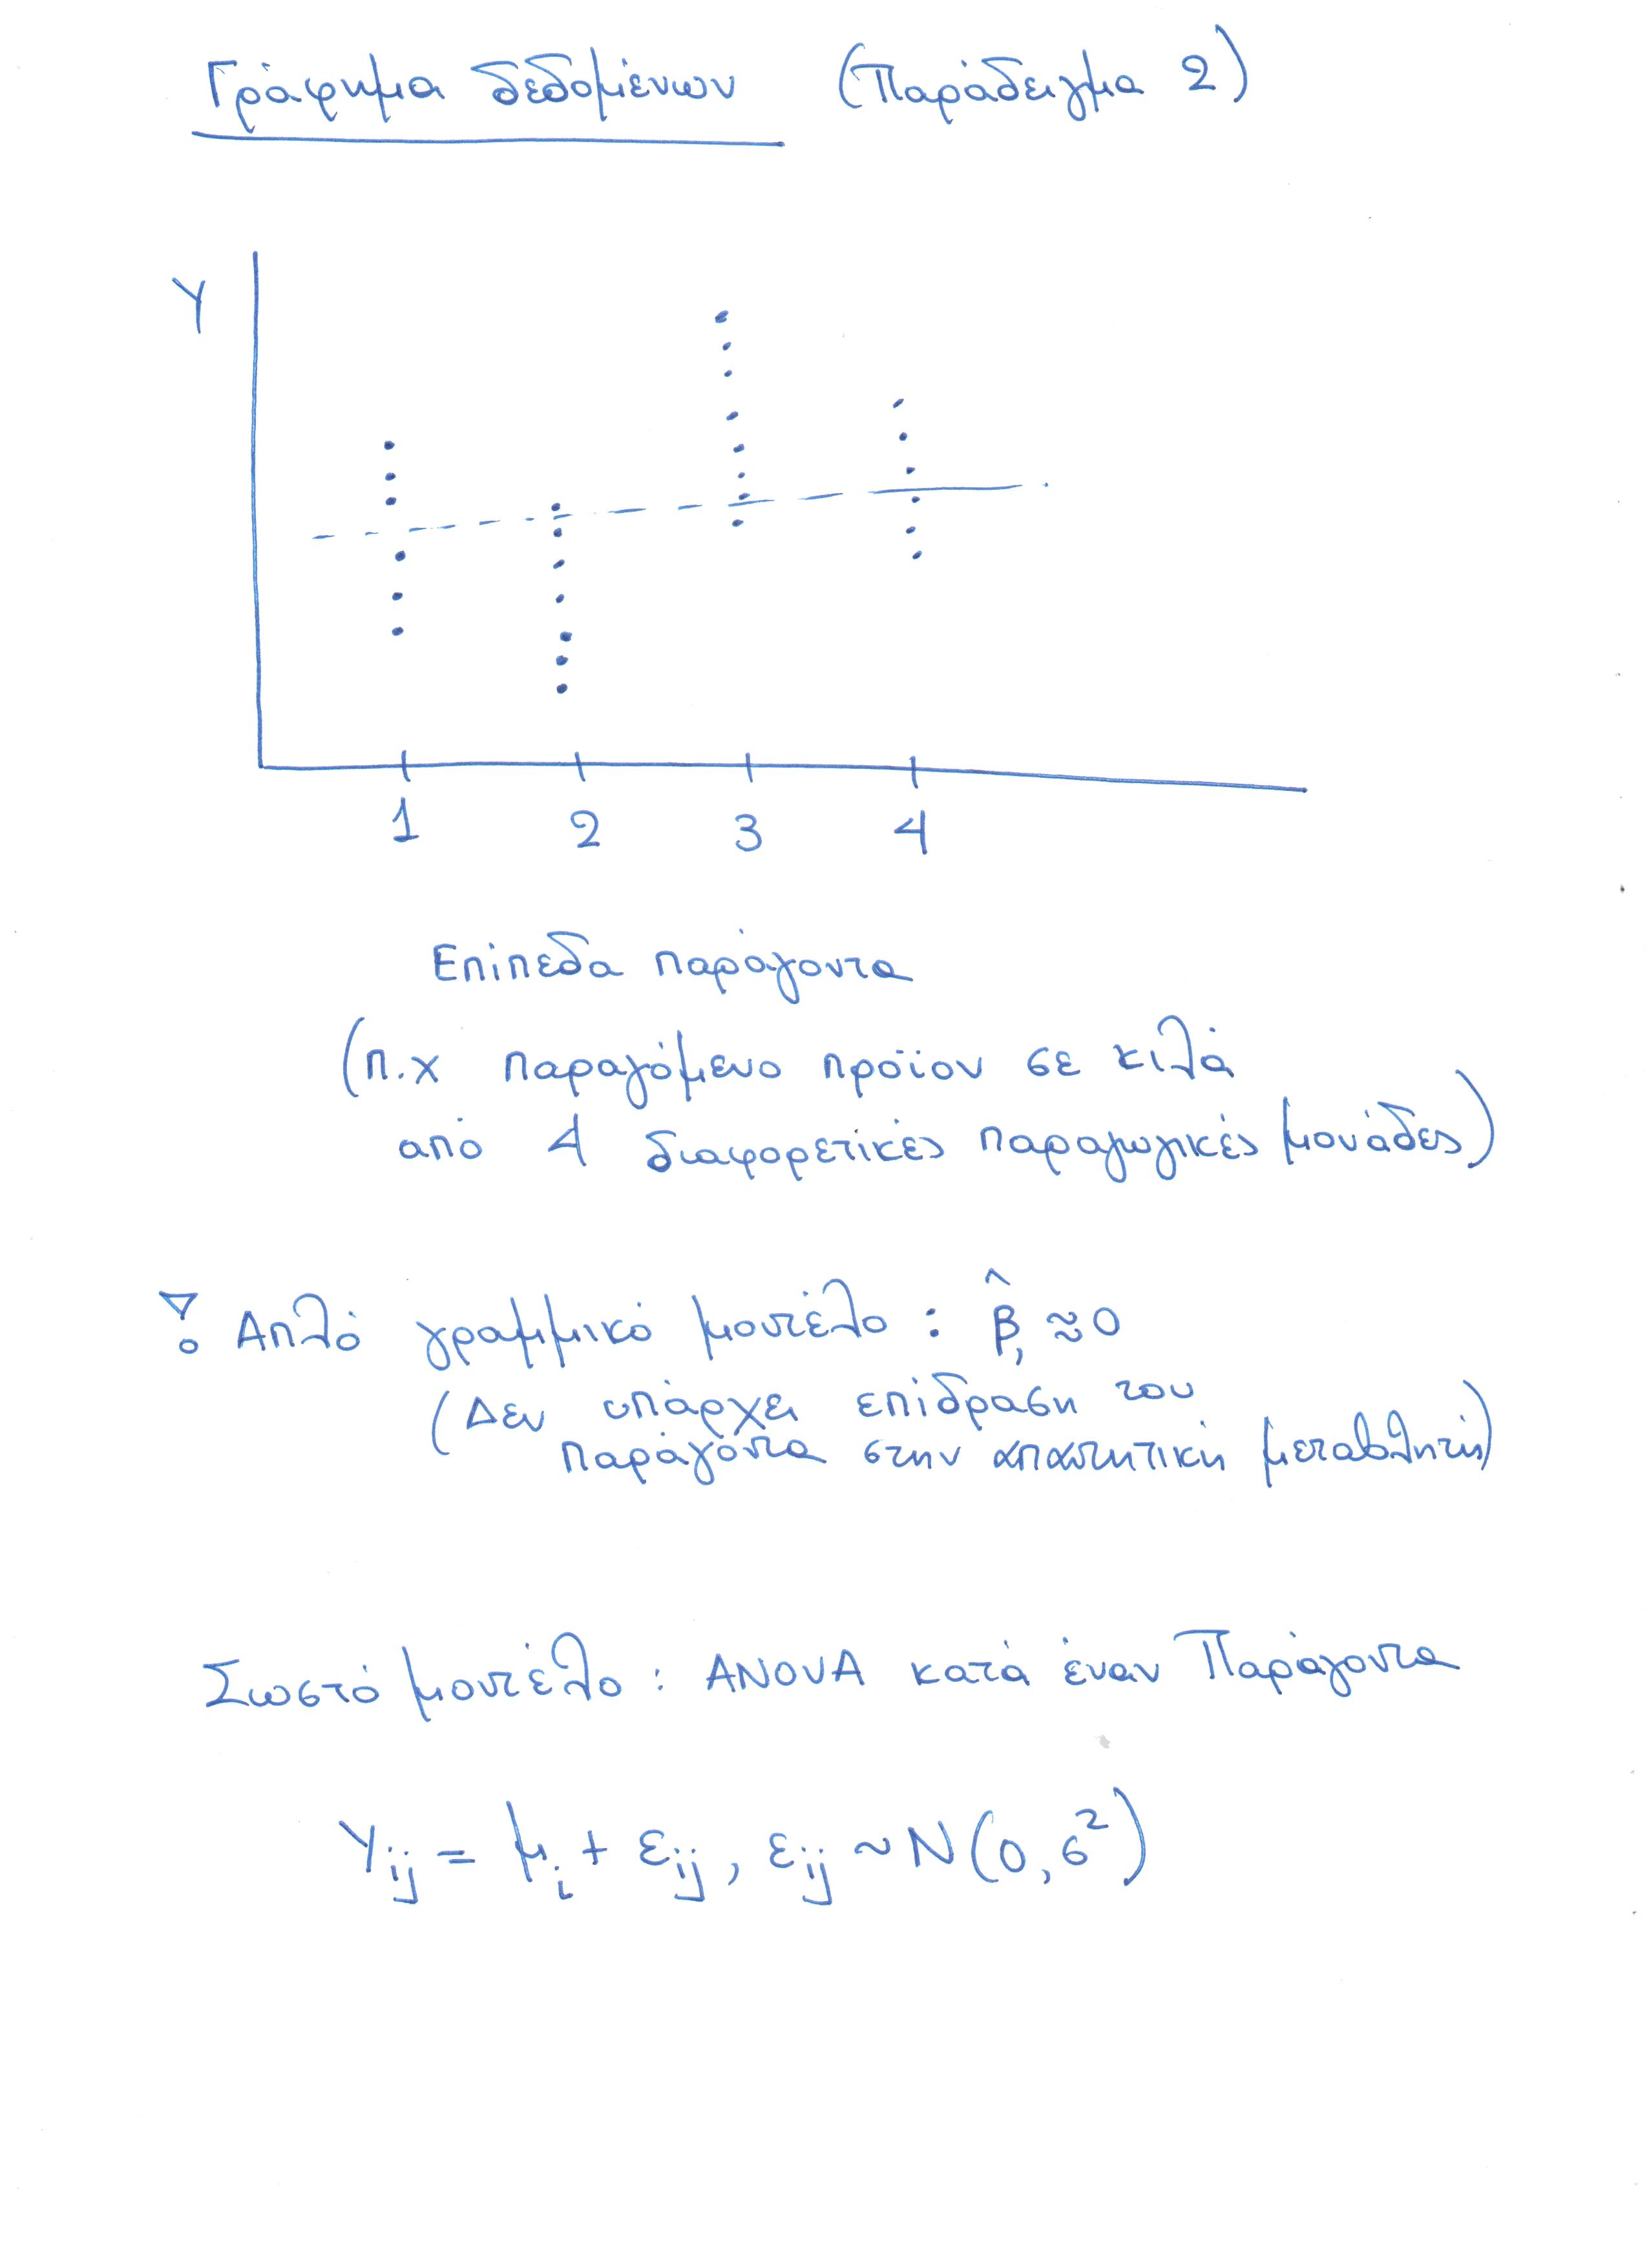 Γράφημα δεδομένων (Παράδειγμα 2)
Y
1 2 3 4
Επίπεδα παράγοντα
(π.χ παραγόμενο προϊον σε κιλά
από 4 διαφορετικές παραγωγικές μονάδες)
! Απλό γραμμικό μοντέλο : β̂₁ ≈ 0
(Δεν υπάρχει επίδραση του
παράγοντα στην απαντητική μεταβλητή)
Σωστό μοντέλο : ANOVA κατά έναν Παράγοντα
Yij = μi + εij, εij ~ N(0, σ²)